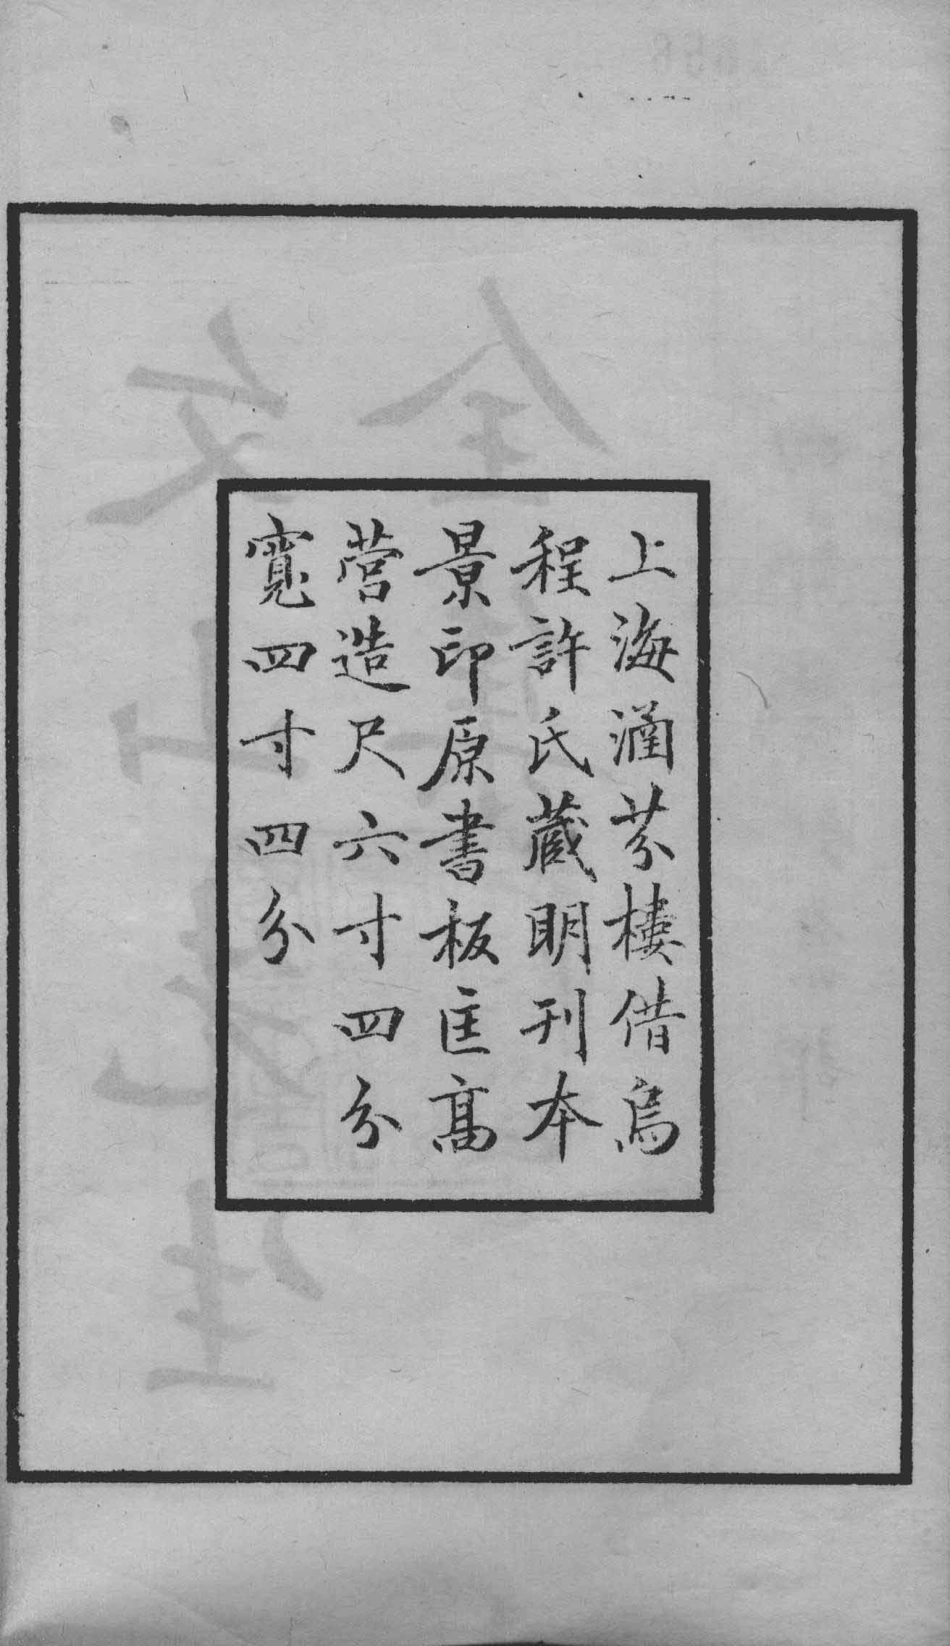 上海涵芬樓借烏
程許氏藏明刊本
景印原書板匡高
營造尺六寸四分
寬四寸四分